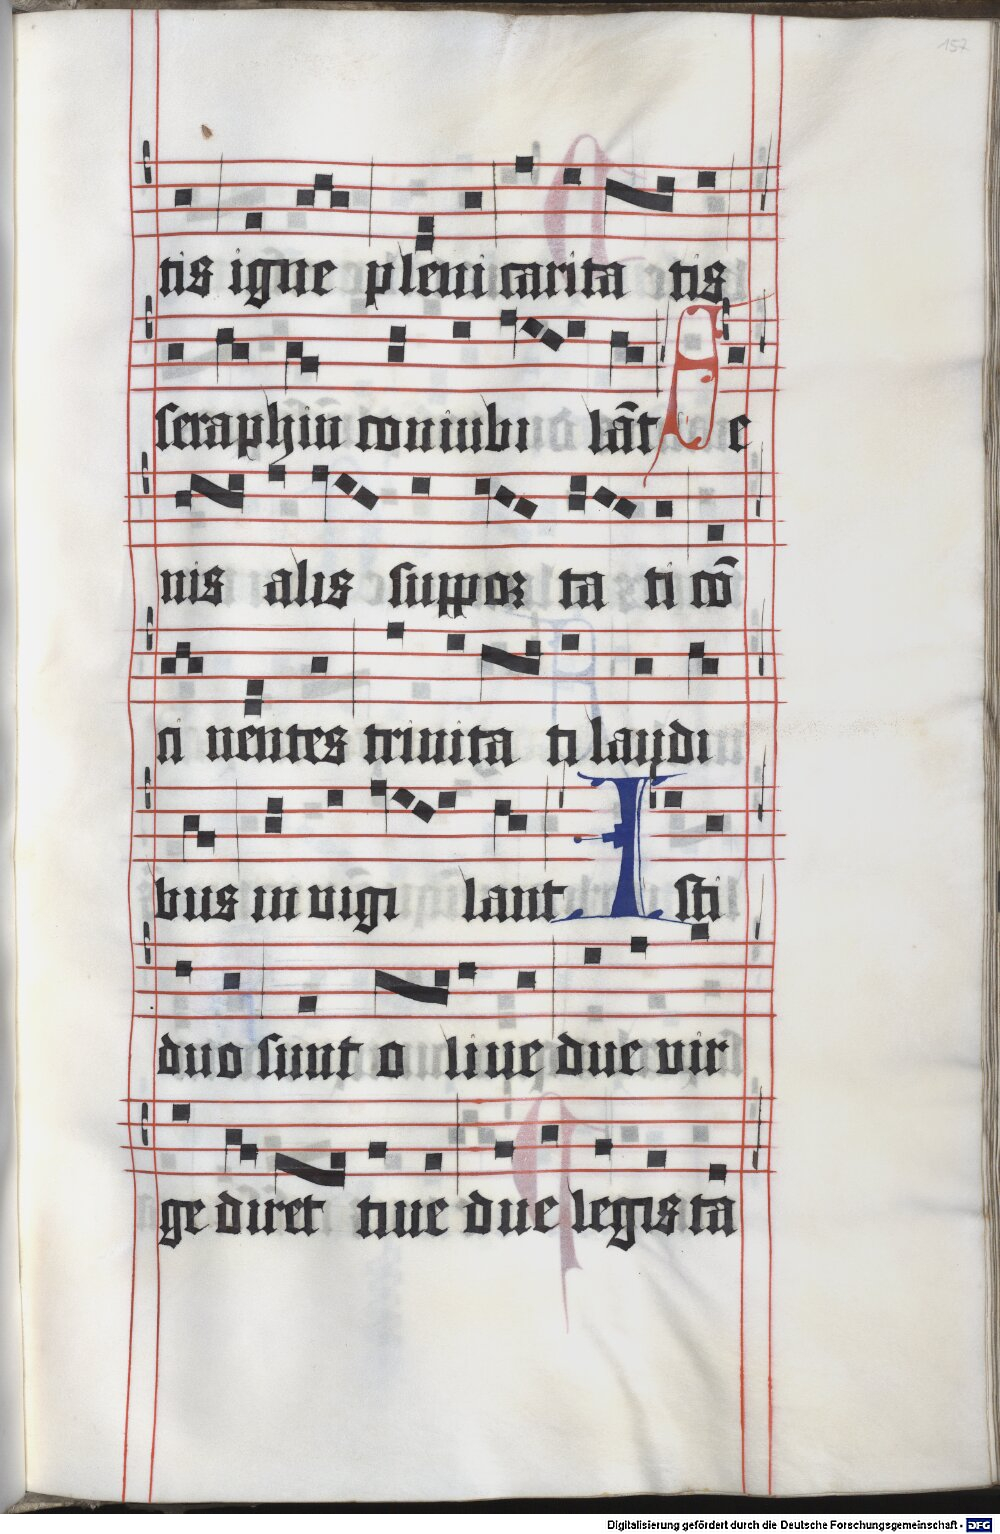 157
tis igne pleni carita tis
seraphin coniubi lāt Se
nis alis suppor ta ti cō
ti nentes trinita ti laudi
bus in vigi lant Isti
duo sunt o live due vir
ge diret tive due legis ta
Digitalisierung gefördert durch die Deutsche Forschungsgemeinschaft - DFG